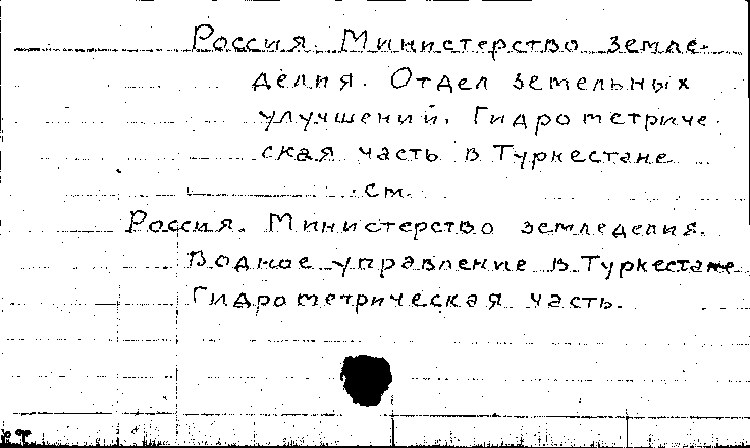 Россия. Министерство земле-
делия. Отдел земельных
улучшений. Гидрометриче-
ская часть в Туркестане
см.
Россия. Министерство земледелия.
Водное управление в Туркестане
Гидрометрическая часть.